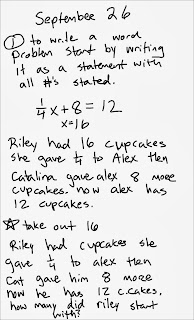 September 26
① to write a word
problem start by writing
it as a statement with
all #'s stated.
1/4 x + 8 = 12
x=16
Riley had 16 cupcakes
she gave 1/4 to Alex then
Catalina gave alex 8 more
cupcakes. now alex has
12 cupcakes.
☆ take out 16
Riley had cupcakes she
gave 1/4 to alex then
Cat gave him 8 more
now he has 12 c.cakes.
how many did riley start
with?